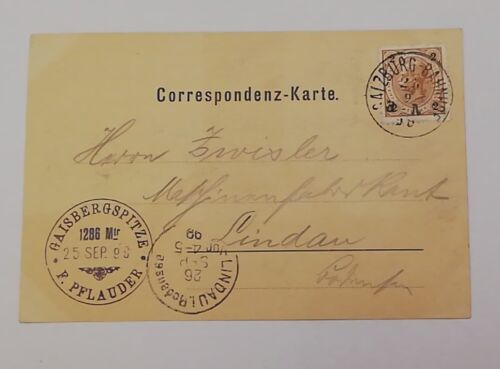 Correspondenz-Karte.
SALZBURG-BAHNHOF
Herrn Zwisler
Maschinenfabrikant
Lindau
Bodensee
GAISBERGSPITZE
1286 Mtr
25 SEP. 96
F. PFLAUDER
LINDAU i. Bodensee
26
Sep
Vor. 4-5
96